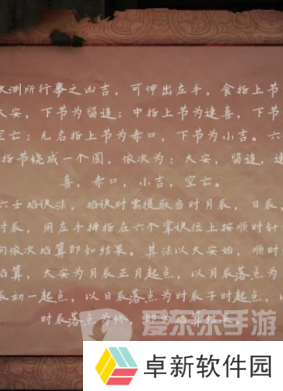 测所行事之凶吉，可伸出左手，食指上节
大安，下节为留连；中指上节为速喜，下节
空亡；无名指上节为赤口，下节为小吉。六
指节绕成一个圆，依次为：大安，留连，速
喜，赤口，小吉，空亡。
六壬掐诀法，掐诀时需提取当时月辰，日辰，
时辰，用左手拇指在六个掌诀位上按顺时针
向依次掐算即知结果。其法以大安始，顺时
掐算，大安为月辰正月起点，以月辰落点为
辰初一起点，以日辰落点为时辰子时起点，以
时辰落点为
爱乐乐手游
卓新软件园